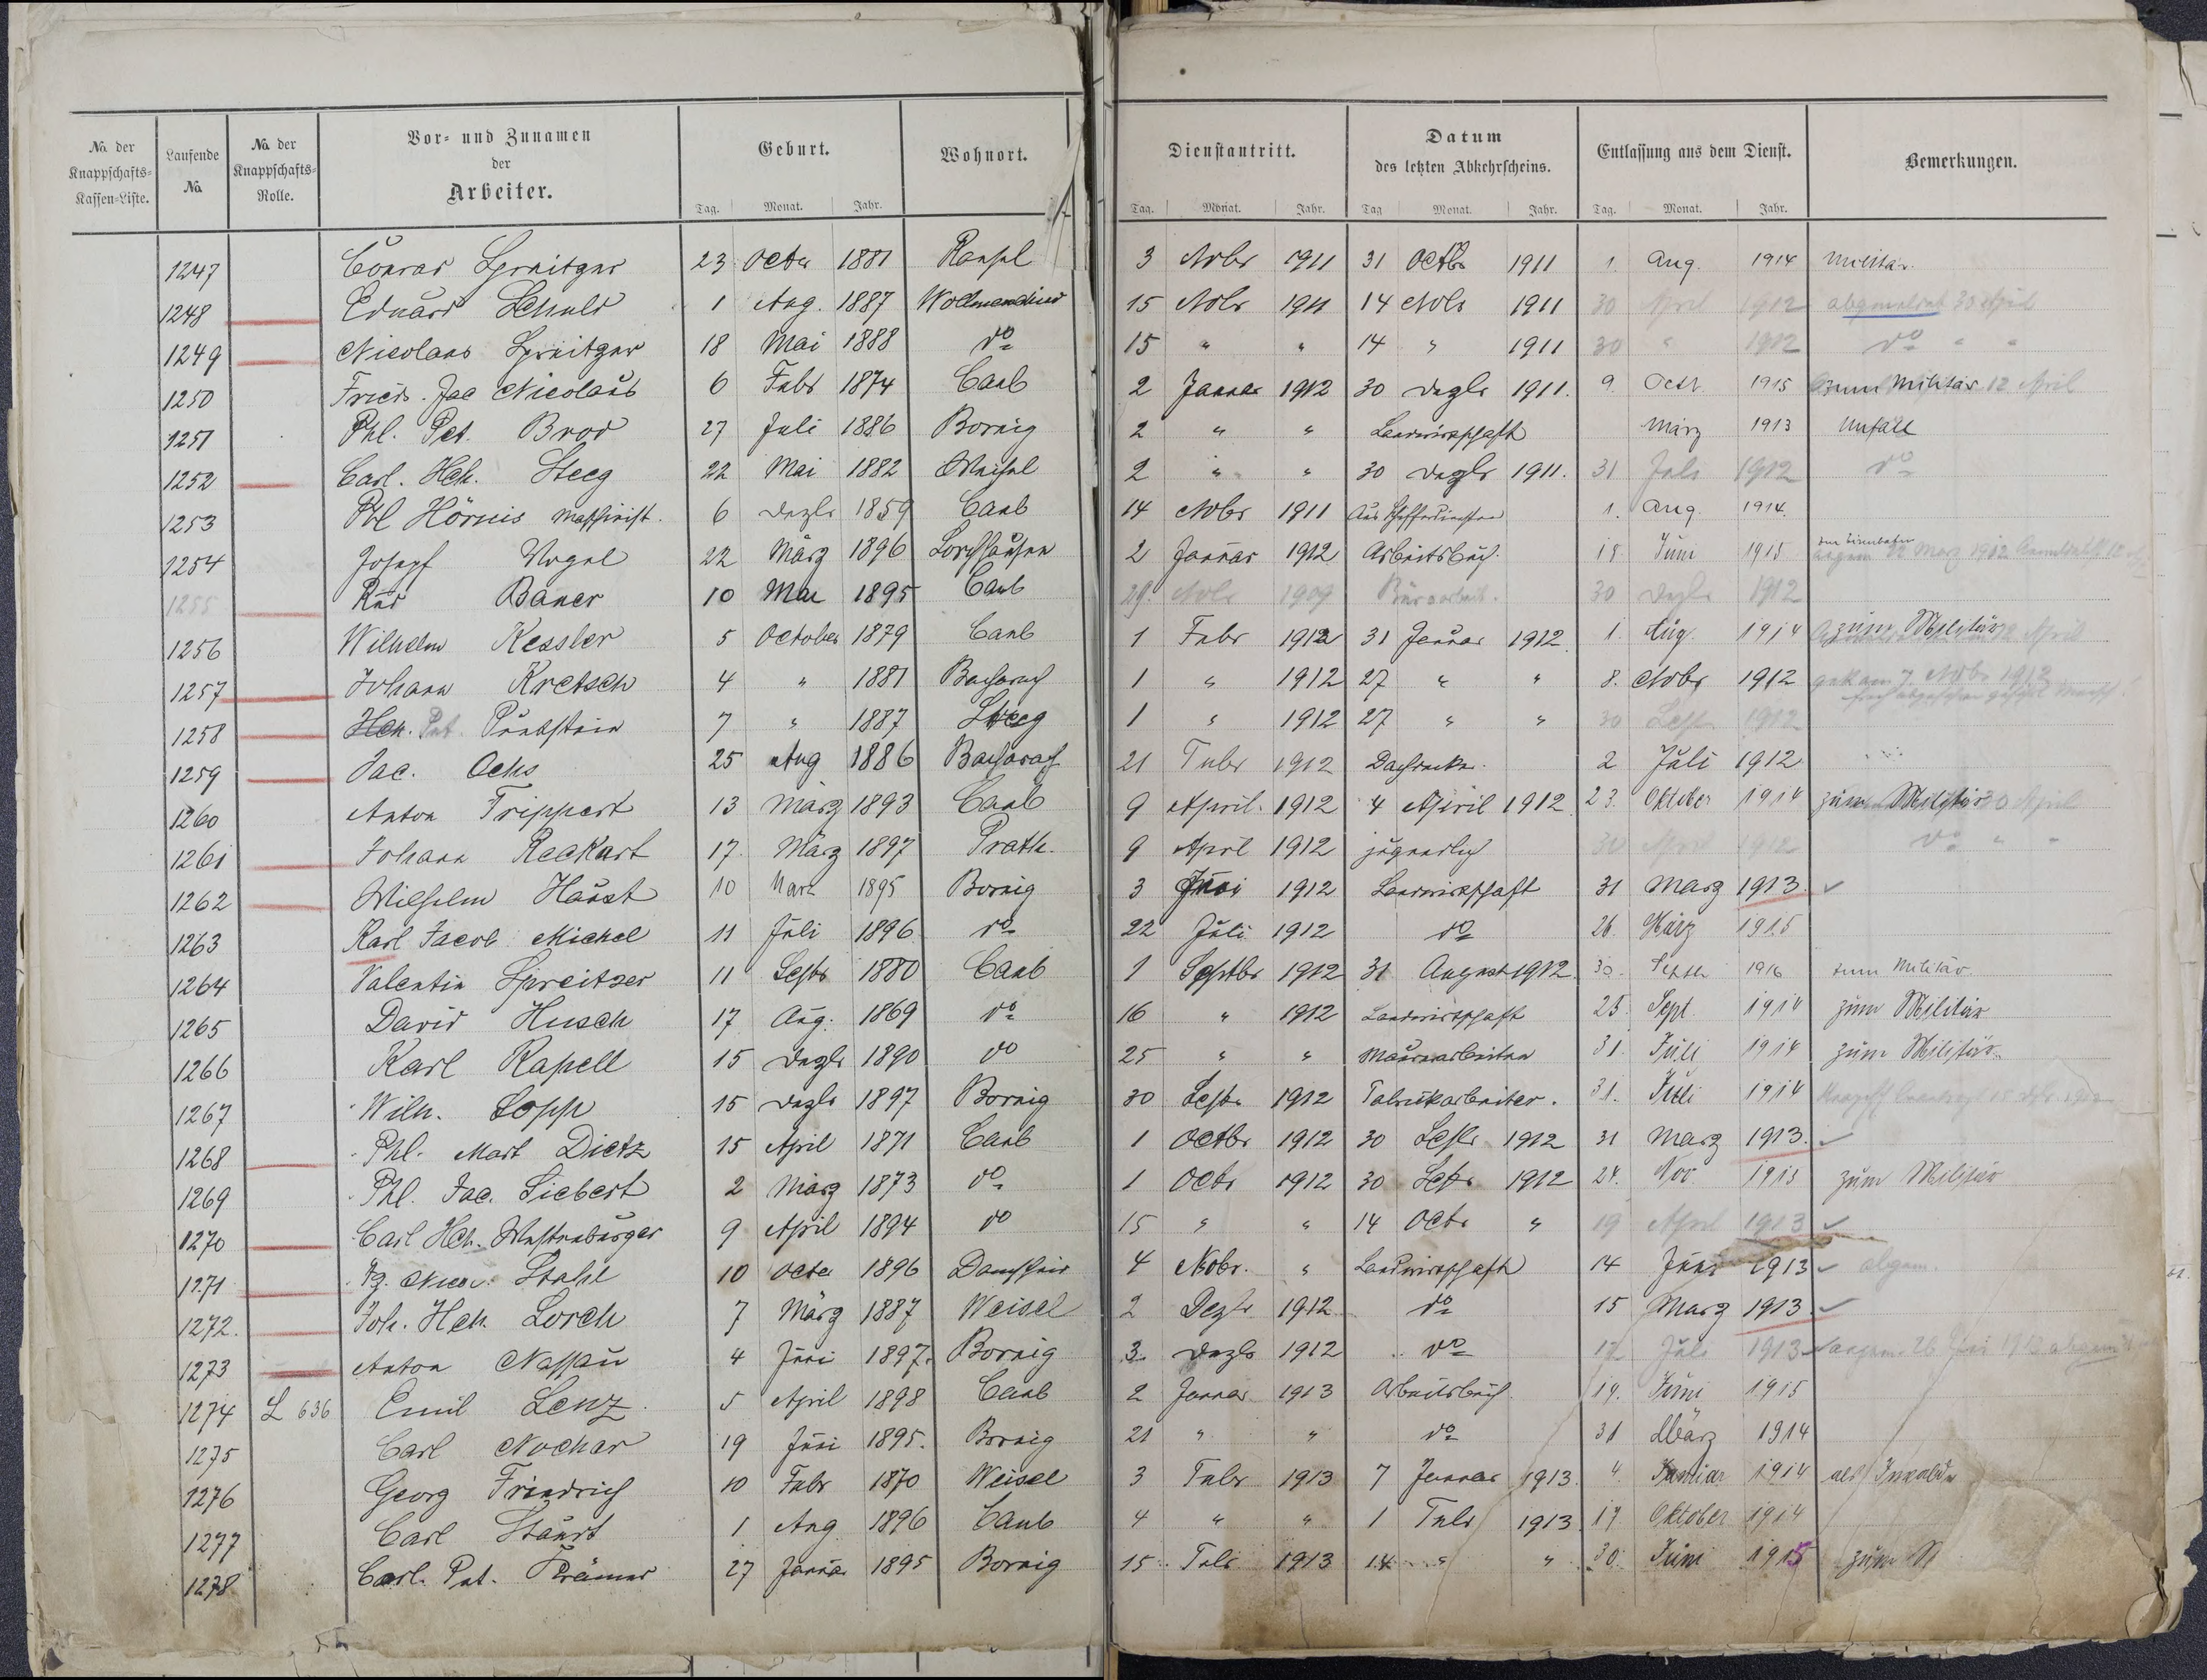 No. der Knappschafts-Kassen-Liste. Laufende No. No. der Knappschafts-Rolle. Vor- und Zunamen der Arbeiter. Geburt. Wohnort. Dienstantritt. Datum des letzten Abkehrscheins. Entlassung aus dem Dienst. Bemerkungen.
Tag. Monat. Jahr. Tag. Monat. Jahr. Tag Monat. Jahr. Tag. Monat. Jahr.
1247 Conrad Spreitzer 23 Octbr 1881 Ransel 3 Nvbr 1911 31 Octbr 1911 1. Aug. 1914 Militär.
1248 Eduard Schuld 1 Aug. 1887 15 Nvbr 1911 14 Nvbr 1911 30 April 1912 30 April
1249 Nicolaus Spreitzer 18 Mai 1888 do 15 " " 14 " 1911 30 " 1912 do " "
1250 Fried. Jac Nicolaus 6 Febr 1874 Caub 2 Januar 1912 30 Dezbr 1911. 9. Octr. 1915 zum Militär 12 April
1251 Phl. Pet. Brod 27 Juli 1886 Bornig 2 " " Landwirtschaft März 1913 Unfall
1252 Carl. Hch. Steeg 22 Mai 1882 Weisel 2 " " 30 Dezbr 1911. 31 Juli 1912 do
1253 Phl Hörnis Maschinist. 6 Dezbr 1859 Caub 14 Nvbr 1911 1. Aug. 1914.
1254 Josepf Vogel 22 März 1896 Lorchhausen 2 Januar 1912 Arbeitsbuch. 15 Juni 1915 zur Eisenbahn
1255 Rud Bauer 10 Mai 1895 Caub 29. Nvbr 1909 Büroarbeit. 30 Dezbr 1912
1256 Wilhelm Kessler 5 October 1879 Caub 1 Febr 1912 31 Januar 1912 1. Aug. 1914 zum Militär
1257 Johann Kretsch 4 " 1881 Bacharach 1 " 1912 27 " " 8. Nvbr 1912 7 Nvbr 1912
1258 Hch. Pet. 7 " 1887 Steeg 1 " 1912 27 " " 30 Septr 1912
1259 Jac. Ochs 25 Aug 1886 Bacharach 21 Febr 1912 Dachdecker. 2 Juli 1912
1260 Anton Trippert 13 März 1893 Caub 9 April. 1912 4 April 1912 23. Oktober 1914 zum Militär 30 April
1261 Johann Reckart 17. März 1897 Prath. 9 April 1912 jugendlich 30 April 1912 do " "
1262 Wilhelm Haust 10 März 1895 Bornig 3 Juni 1912 Landwirtschaft 31 März 1913. ✓
1263 Karl Jacob Michel 11 Juli 1896 do 22 Juli 1912 do 26. März 1915
1264 Valentin Spreitzer 11 Septr 1880 Caub 1 Septbr 1912 31 August 1912. 30. Septbr 1916 zum Militär.
1265 David Husch 17 Aug. 1869 do 16 " 1912 Landwirtschaft 25. Sept. 1914 zum Militär
1266 Karl Rapell 15 Dezbr 1890 do 25 " " Maurerarbeiten 31. Juli 1914 zum Militär.
1267 Wilh. Sopp 15 Dezbr 1897 Bornig 30 Septr 1912 Fabrikarbeiter. 31. Juli 1914
1268 Phl. Mart Dietz 15 April 1871 Caub 1 Octbr 1912 30 Septr 1912 31 März 1913. ✓
1269 Phl. Jac. Siebert 2 März 1873 do 1 Octr 1912 30 Septr 1912 24. Nov. 1915 zum Militär
1270 Carl Hch. Westenburger 9 April 1894 do 15 " " 14 Octr " 19 April 1913 ✓
1271 Stahl 10 Octbr 1896 4 Nobr. " Landwirtschaft 14 Juni 1913 ✓ abgem.
1272. Joh. Hch. Lorch 7 März 1887 Weisel 2 Dezbr 1912 do 15 März 1913 ✓
1273 Anton Nassau 4 Juni 1897. Bornig 3. Dezbr 1912 do 12 Juli 1913
1274 L 636 Emil Lenz 5 April 1898 Caub 2 Januar 1913 Arbeitsbuch 19. Juni 1915
1275 Carl Nocher 19 Juni 1895. Bornig 21 " " do 31 März 1914
1276 Georg Friedrich 10 Febr 1870 Weisel 3 Febr 1913 7 Januar 1913. 4. Januar 1914 als Invalide
1277 Carl Stauert 1 Aug 1896 Caub 4 " " 1 Febr 1913. 17. Oktober 1914
1278 Carl. Pet. Krämer 27 Januar 1895 Bornig 15. Febr 1913 14 " " 30. Juni 1915 zum